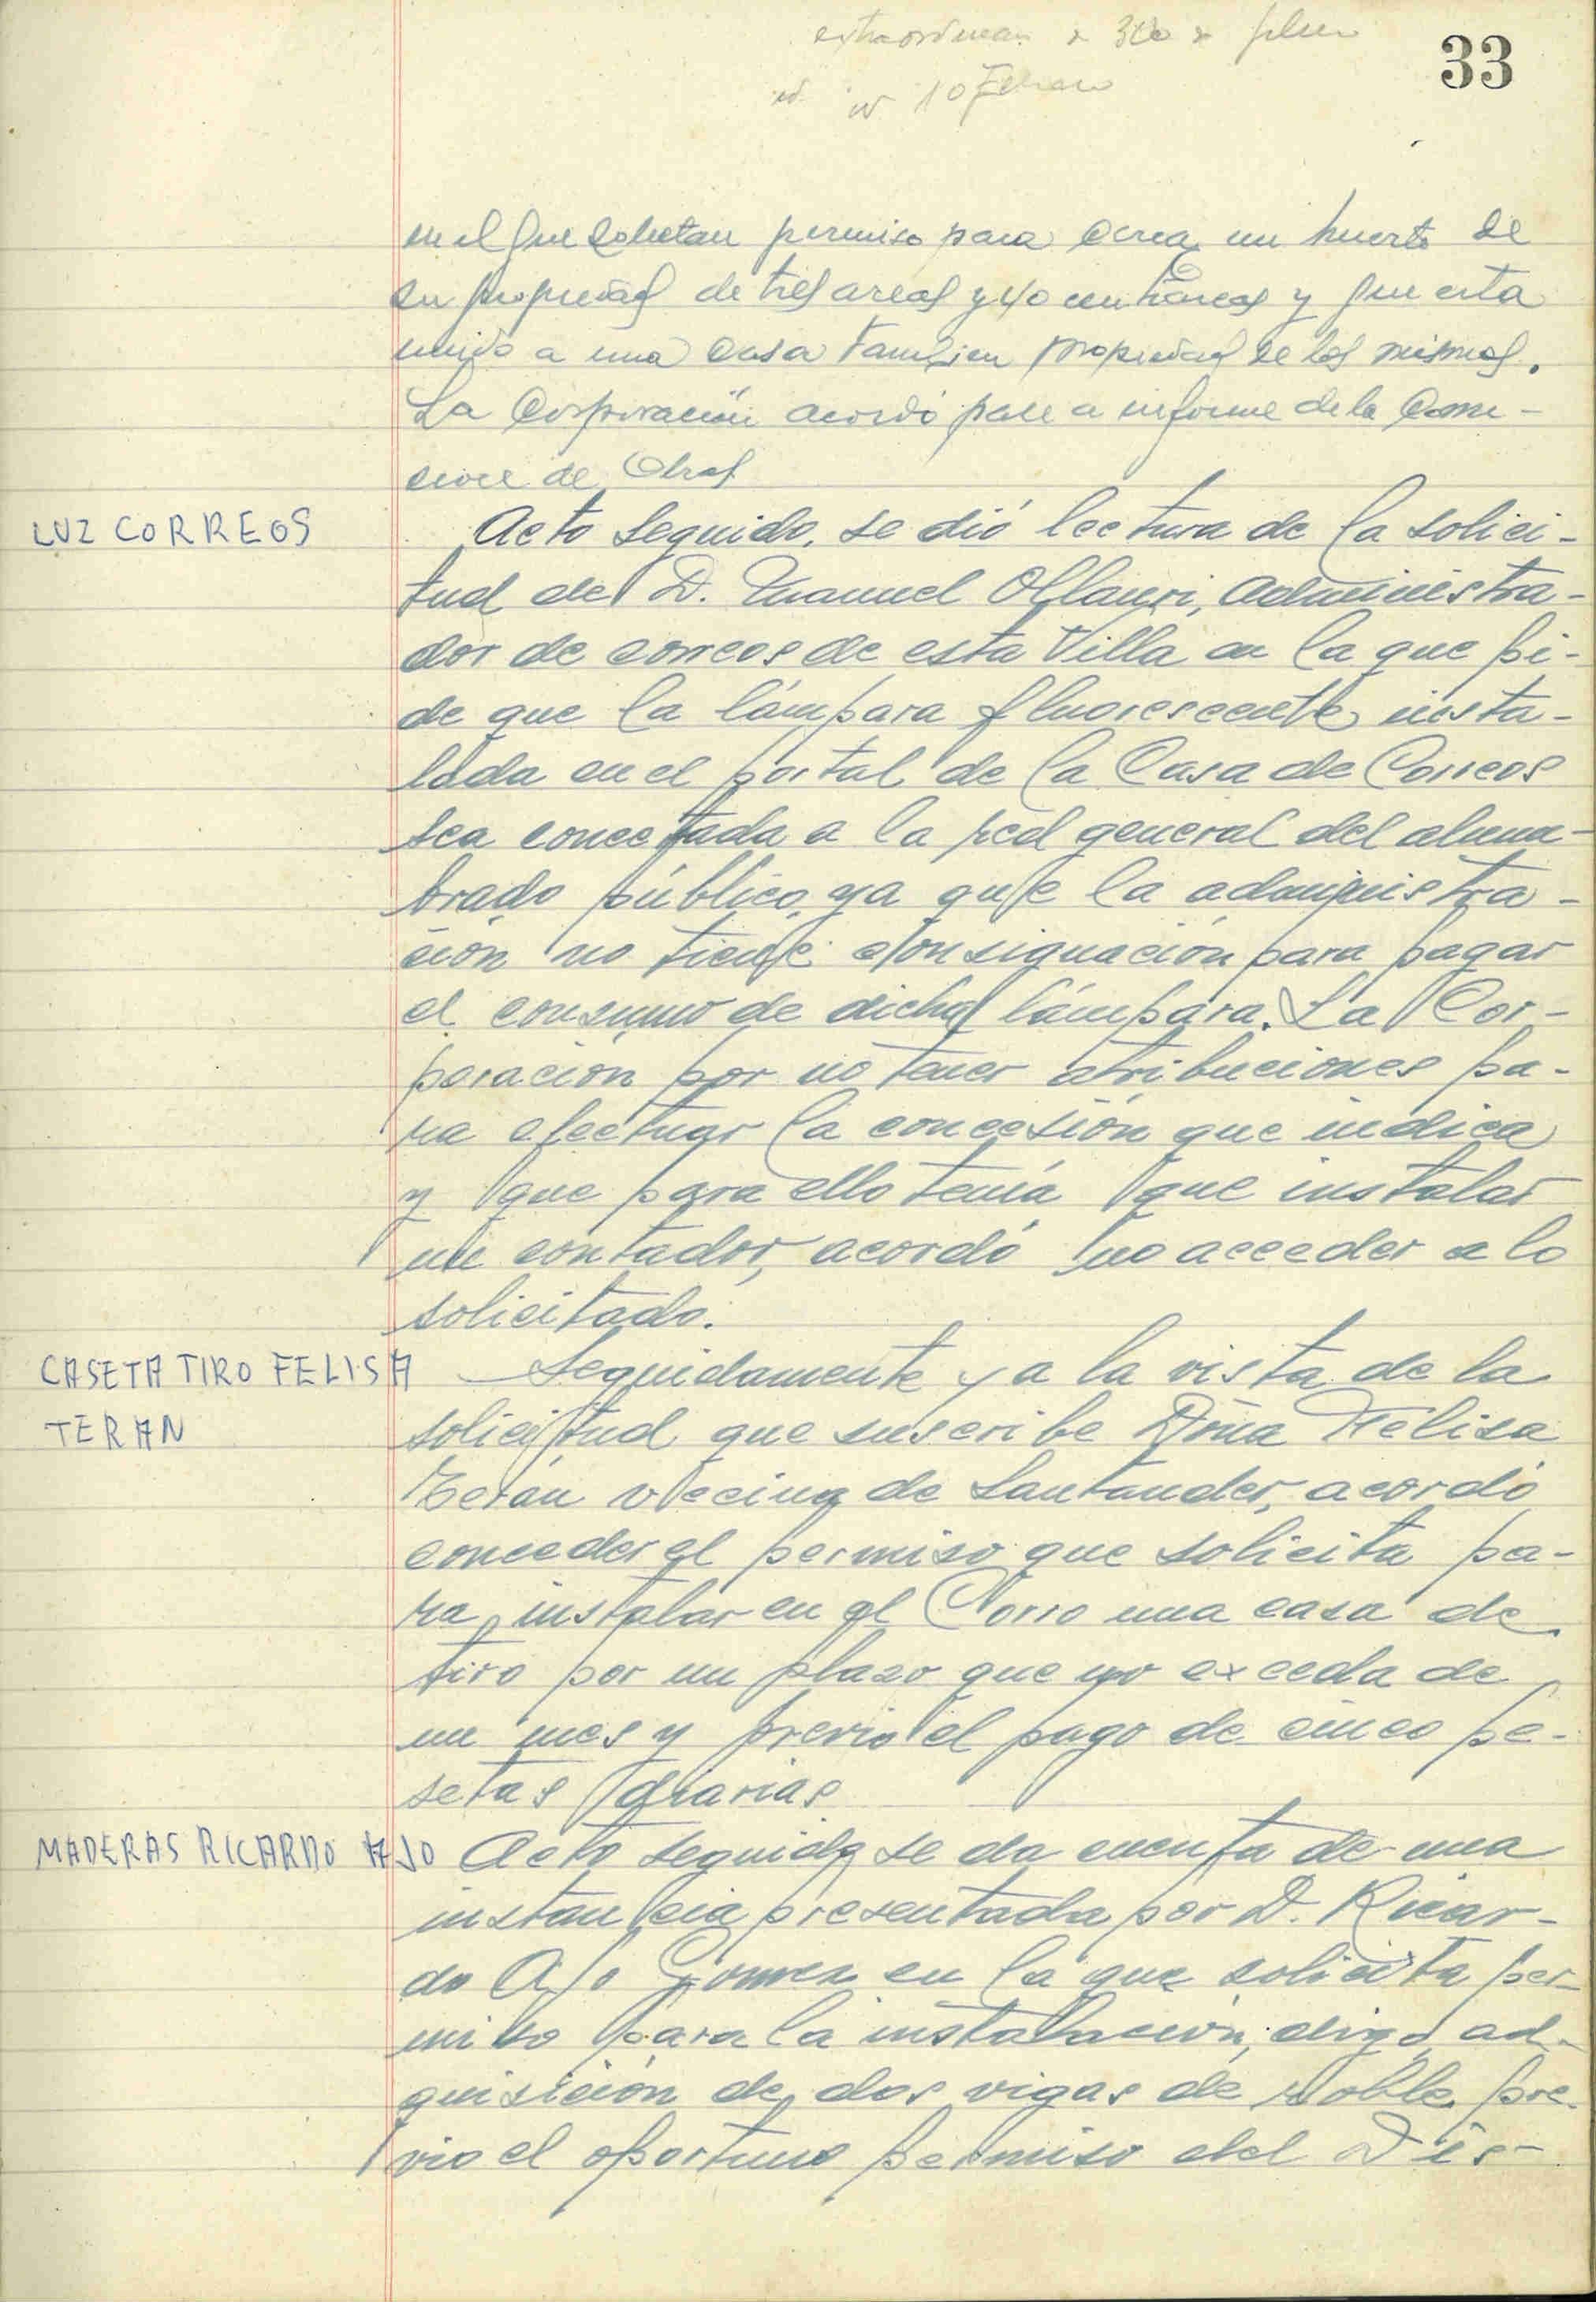 33
10 Febrero
en el que solicitan permiso para cercar un huerto de
su propiedad de tres areas y 40 centiareas y que esta
unido a una casa tambien propiedad de los mismos.
La Corporación acordó pase a informe de la Comi-
sion de Obras
LUZ CORREOS
Acto seguido, se dió lectura de la solici-
tud de D. Manuel Ollauri, Administra-
dor de correos de esta Villa en la que pi-
de que la lámpara fluorescente insta-
lada en el portal de la Casa de Correos
sea conectada a la red general del alum-
brado público, ya que la administra-
ción no tiene consignación para pagar
el consumo de dicha lámpara. La Cor-
poración por no tener atribuciones pa-
ra efectuar la concesión que indica
y que para ello tenía que instalar
un contador, acordó no acceder a lo
solicitado.
CASETA TIRO FELISA
TERAN
Seguidamente y a la vista de la
solicitud que suscribe Dña Felisa
Terán vecina de Santander, acordó
conceder el permiso que solicita pa-
ra instalar en el Corro una casa de
tiro por un plazo que no exceda de
un mes y previo el pago de cinco pe-
setas diarias
MADERAS RICARDO AJO
Acto seguido se da cuenta de una
instancia presentada por D. Ricar-
do Ajo Gomez en la que solicita per-
miso para la instalación, digo, ad-
quisición de dos vigas de roble pre-
vio el oportuno permiso del Dis-